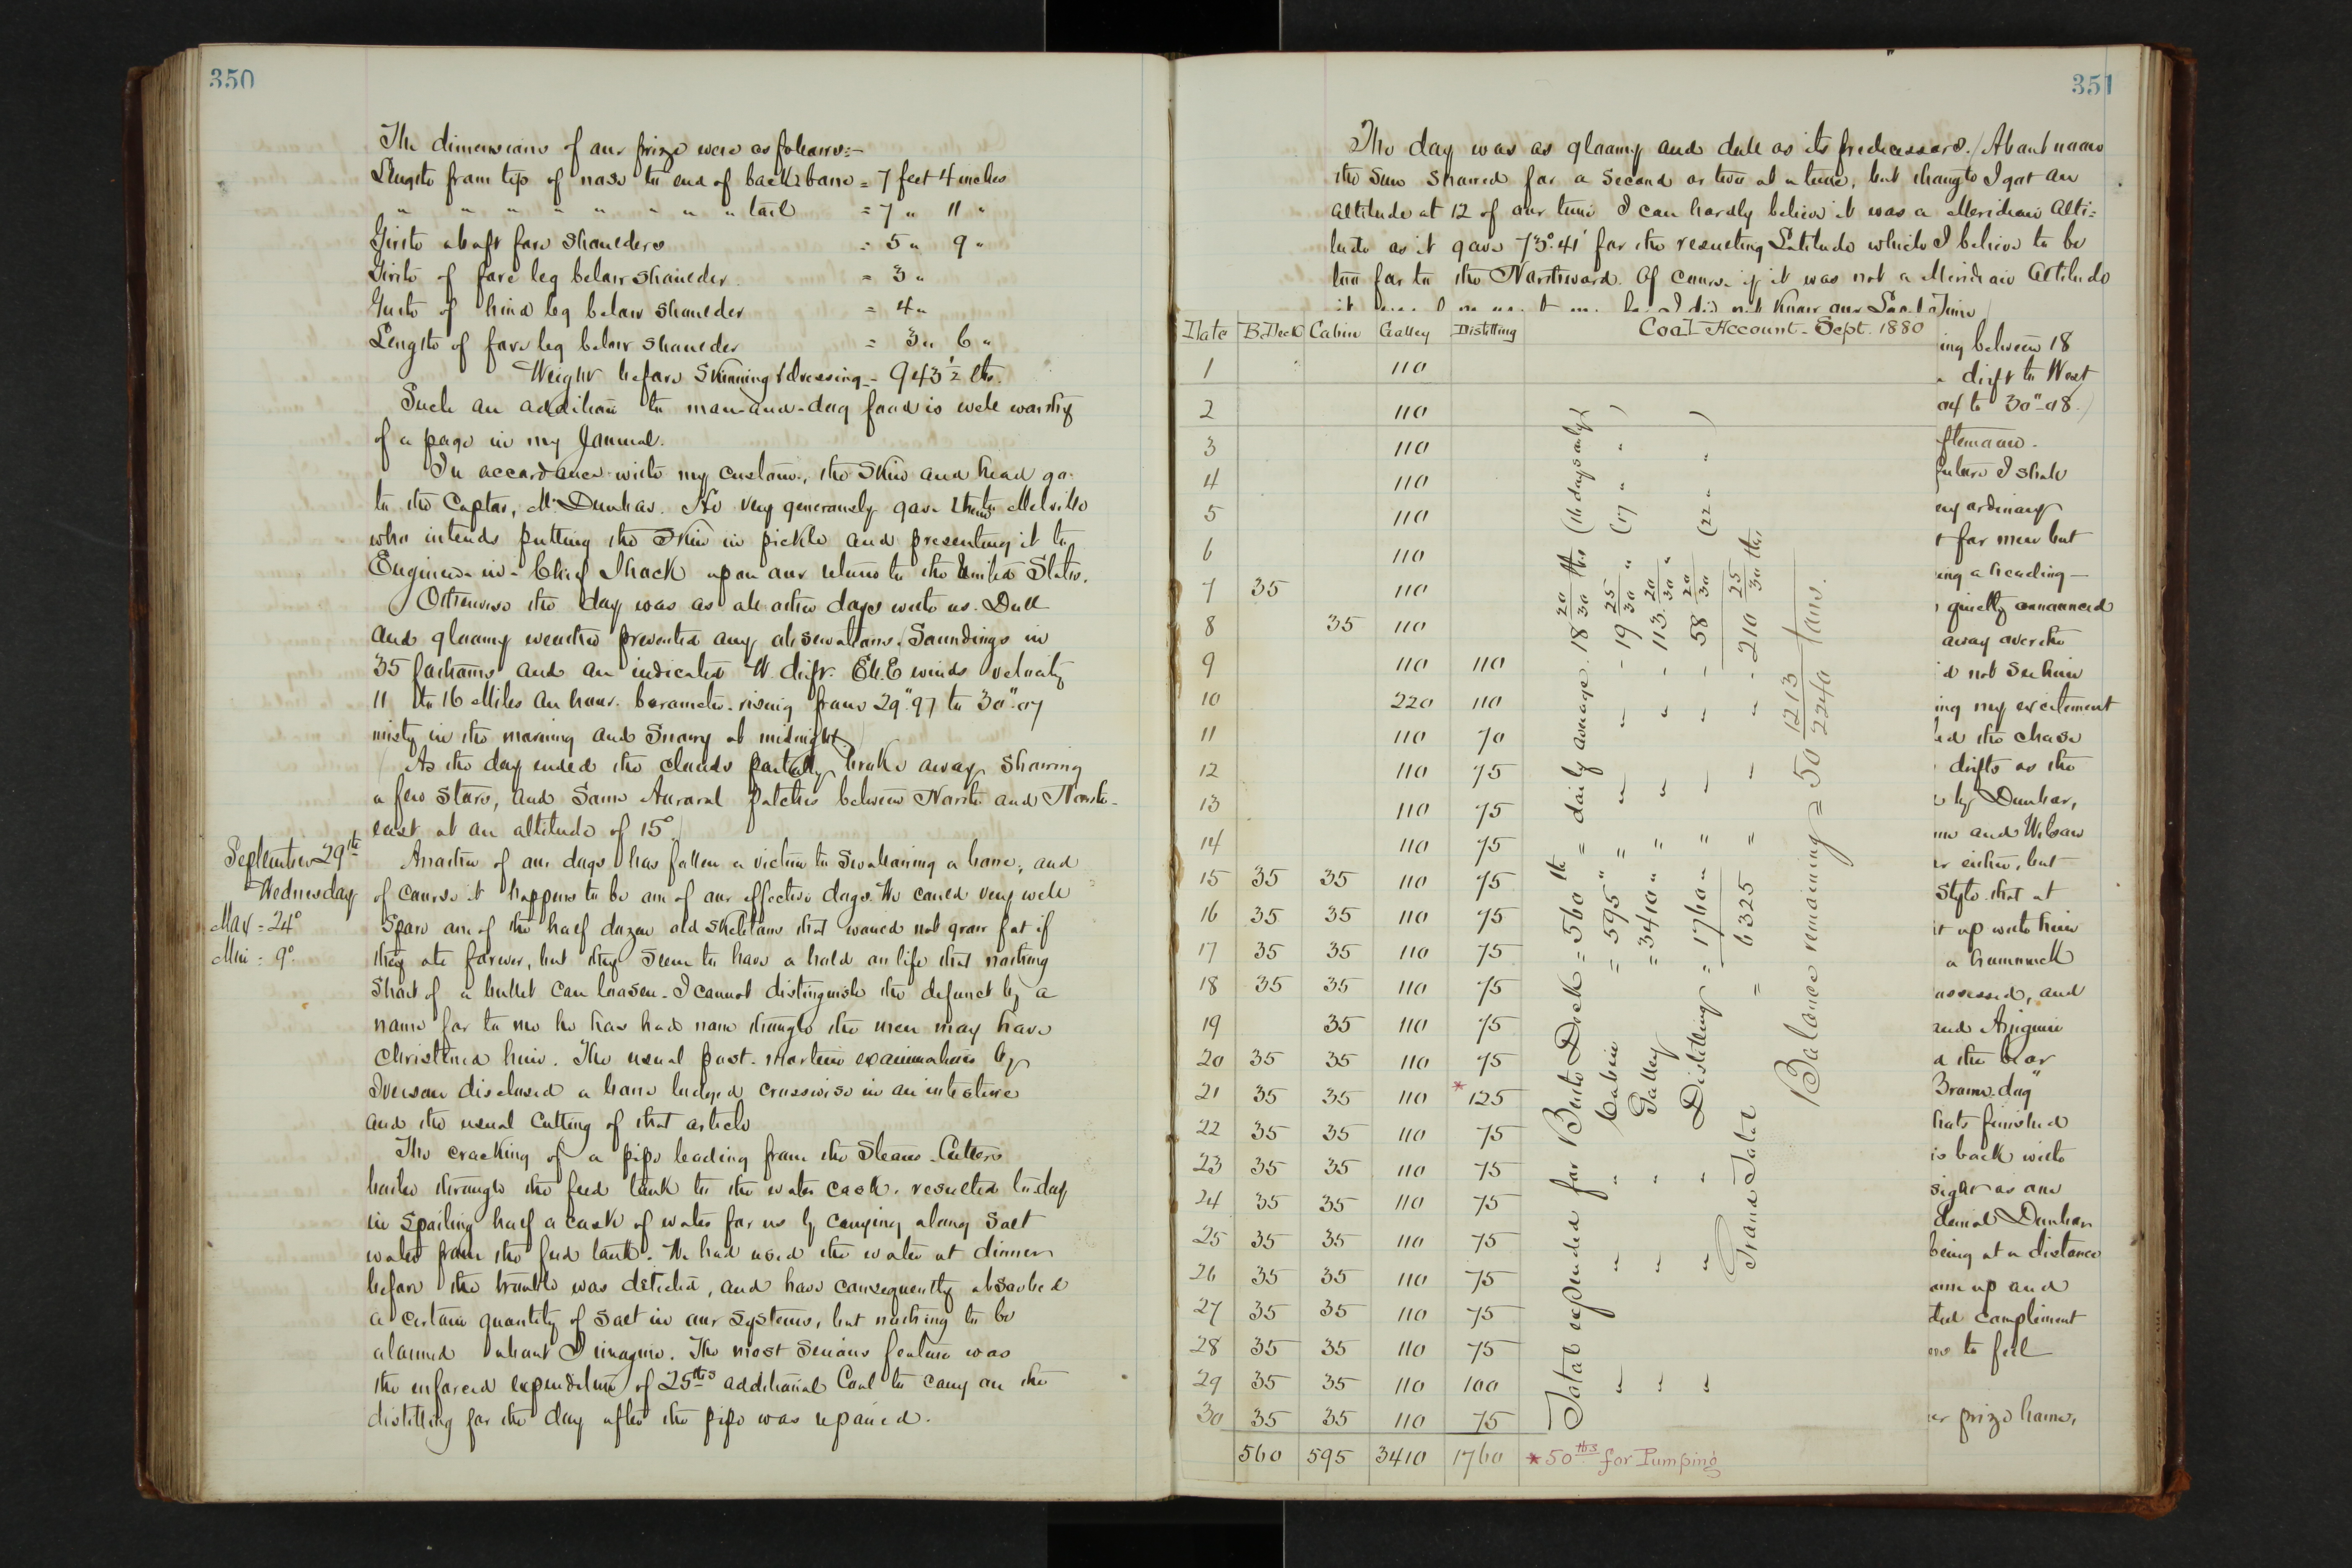 350
The dimensions of our prize were as follows:-
Length from tip of nose to end of back bone = 7 feet 4 inches
" " " " " " " " tail = 7 " 11 "
Girth abaft fore shoulders = 5 " 9 "
Girth of fore leg below shoulder = 3 "
Girth of hind leg below shoulder = 4 "
Length of fore leg below shoulder = 3 " 6 "
Weight before skinning & dressing - 943 1/2 lbs.
Such an addition to man-and-dog food is well worthy
of a page in my Journal.
In accordance with my custom, the skin and head go
to the Captor, Mr Dunbar. He very generously gave them to Melville
who intends putting the skin in pickle and presenting it to
Engineer-in-Chief Shock upon our return to the United States.
Otherwise the day was as all other days with us. Dull
and gloomy weather prevented any observations. Soundings in
35 fathoms and an indicated W. drift. Ely winds velocity
11 to 16 Miles an hour. barometer rising from 29".97 to 30".07
misty in the morning and Snowy at midnight.
As the day ended the clouds partially broke away, showing
a few stars, and some Auroral patches between North and North-
east at an altitude of 15°.
September 29th
Wednesday
Max = 24°
Min = 9°
Another of our dogs has fallen a victim to swallowing a bone, and
of course it happens to be one of our effective dogs. We could very well
spare one of the half dozen old skeletons that would not grow fat if
they ate forever, but they seem to have a hold on life that nothing
short of a bullet can loosen. I cannot distinguish the defunct by a
name for to me he has had none though the men may have
christened him. The usual post-mortem examination by
Iverson disclosed a bone lodged crosswise in an intestine
and the usual cutting of that article
The cracking of a pipe leading from the Steam-Cutter's
boiler through the feed tank to the water cask, resulted to-day
in spoiling half a cask of water for us by carrying along salt
water from the feed tank. We had used the water at dinner
before the trouble was detected, and have consequently absorbed
a certain quantity of salt in our systems, but nothing to be
alarmed about I imagine. The most serious feature was
the enforced expenditure of 25 lbs additional Coal to carry on the
distilling for the day after the pipe was repaired.
351
The day was as gloomy and dull as its predecessors. About noon
the Sun showed for a second or two at a time, but though I got an
altitude at 12 of our time I can hardly believe it was a Meridian Alti=
tude as it gave 73°.41' for the resulting Latitude which I believe to be
too far to the Northward. Of course if it was not a Meridian Altitude
I did not know our Local Time
Coal Account - Sept. 1880
Date B.Deck Cabin Galley Distilling
1 110
2 110
3 110
4 110
5 110
6 110
7 35 110
8 35 110
9 110 110
10 220 110
11 110 70
12 110 75
13 110 75
14 110 75
15 35 35 110 75
16 35 35 110 75
17 35 35 110 75
18 35 35 110 75
19 35 110 75
20 35 35 110 75
21 35 35 110 *125
22 35 35 110 75
23 35 35 110 75
24 35 35 110 75
25 35 35 110 75
26 35 35 110 75
27 35 35 110 75
28 35 35 110 75
29 35 35 110 100
30 35 35 110 75
560 595 3410 1760
*50 lbs for Pumping
Total expended for Berth Deck = 560 lbs = daily average 18 20/30 lbs (16 days only)
" " " Cabin = 595 " = " " - 19 25/30 " (17 " " )
" " " Galley = 3410 " = " " - 113 20/30 "
" " " Distilling = 1760 " = " " - 58 20/30 (22 " " )
Grand Total = 6325 = " " - 210 25/30 lbs
Balance remaining = 50 1213/2240 tons.
ing between 18
drift to West
to 30".08.)
fternoon.
future I shall
ny ordinary
t for men but
ing a heading—
quietly announced
away over the
d not see him
ing my excitement
ed the chase
drifts as the
by Dunbar,
and Wilson
er either, but
style that at
it up with him
a hummock
ossessed, and
and Aniguin
d the bear
Brown-dog"
hats finished
is back with
sight as one
denial Dunbar
being at a distance
ame up and
ted compliment
to feel
er prize home,